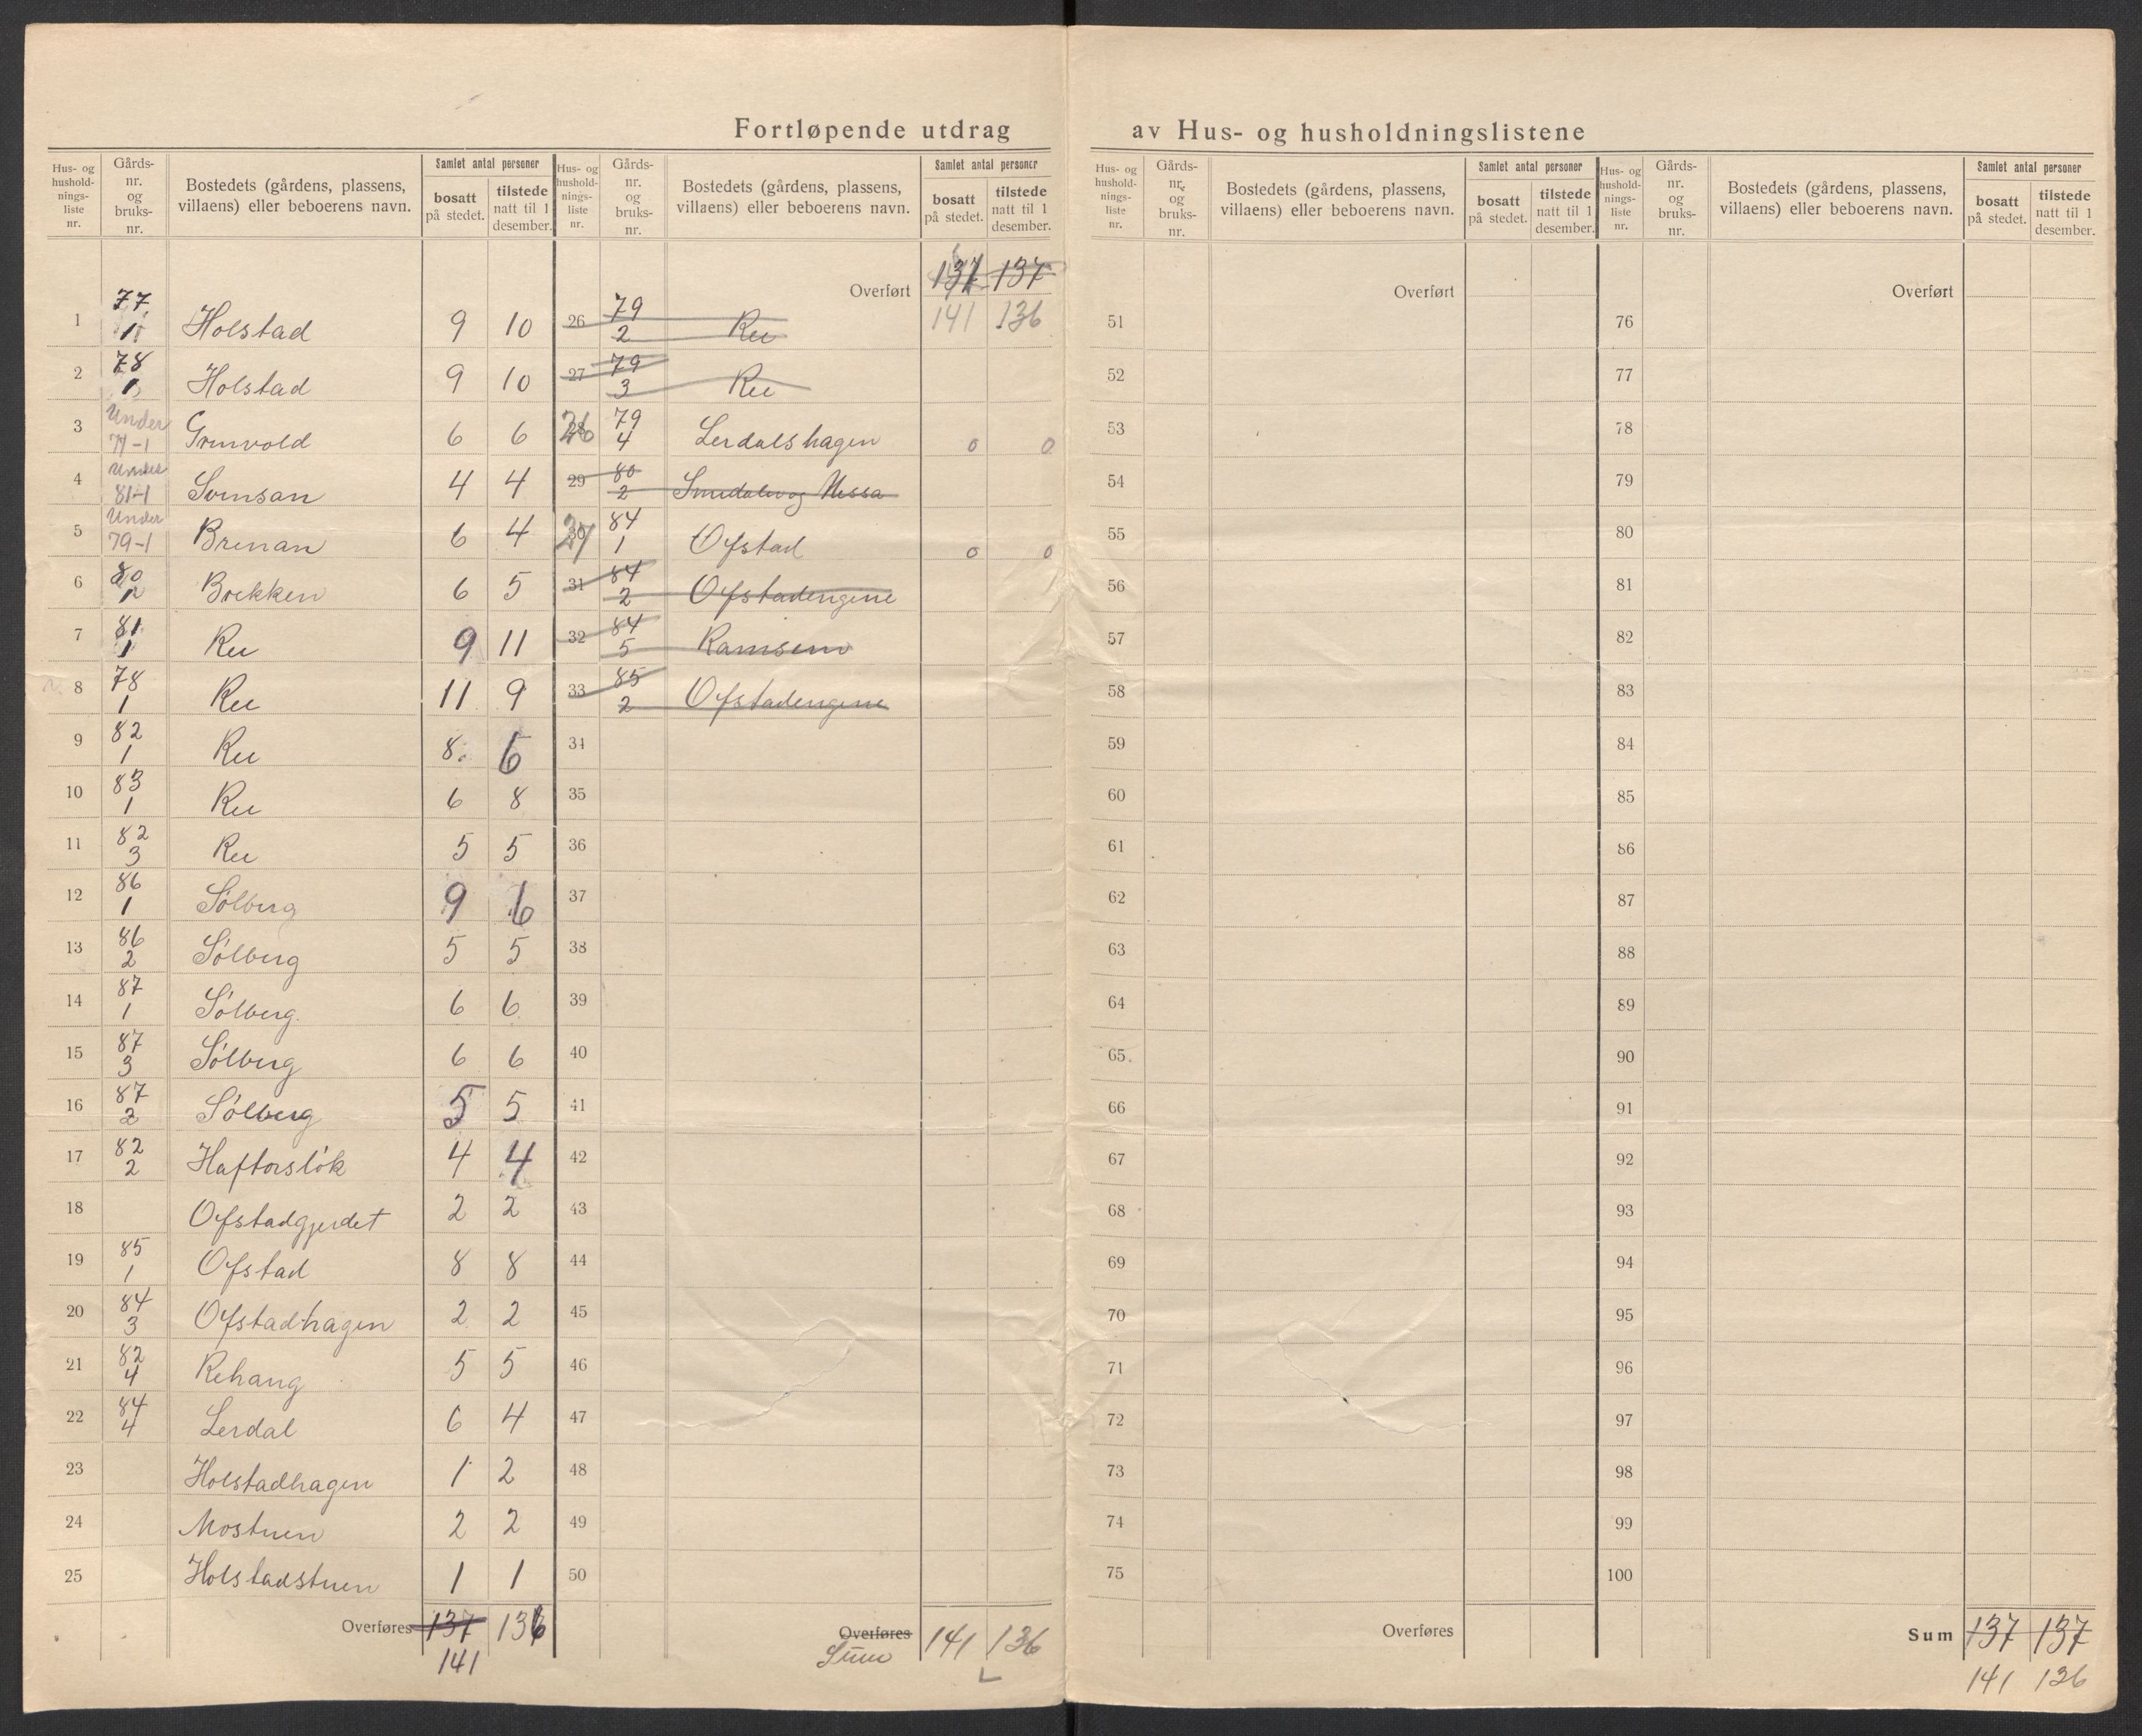 Fortløpende utdrag av Hus- og husholdningslistene
Hus- og hushold-nings-liste nr. | Gårds-nr. og bruks-nr. | Bostedets (gårdens, plassens, villaens) eller beboerens navn. | Samlet antal personer | bosatt på stedet. | tilstede natt til 1 desember.
1 | 77 1 | Holstad | 9 | 10
2 | 78 1 | Holstad | 9 | 10
3 | Under 71-1 | Grinvold | 6 | 6
4 | Under 81-1 | Svinsan | 4 | 4
5 | Under 79-1 | Brenan | 6 | 4
6 | 80 1 | Brekken | 6 | 5
7 | 81 1 | Ree | 9 | 11
8 | 78 1 | Ree | 11 | 9
9 | 82 1 | Ree | 8 | 6
10 | 83 1 | Ree | 6 | 8
11 | 82 3 | Ree | 5 | 5
12 | 86 1 | Sølberg | 9 | 6
13 | 86 2 | Sølberg | 5 | 5
14 | 87 1 | Sølberg. | 6 | 6
15 | 87 3 | Sølberg | 6 | 6
16 | 87 2 | Sølberg | 5 | 5
17 | 82 2 | Haftorsløk | 4 | 4
18 | Ofstadgjerdet | 2 | 2
19 | 85 1 | Ofstad | 8 | 8
20 | 84 3 | Ofstadhagen | 2 | 2
21 | 82 4 | Rehaug | 5 | 5
22 | 84 4 | Lerdal | 6 | 4
23 | Holstadhagen | 1 | 2
24 | Mostuen | 2 | 2
25 | Holstadstuen | 1 | 1
Overføres | 137 | 136
141
Hus- og hushold-nings-liste nr. | Gårds-nr. og bruks-nr. | Bostedets (gårdens, plassens, villaens) eller beboerens navn. | Samlet antal personer | bosatt på stedet. | tilstede natt til 1 desember.
Overført | 137 | 137
141 | 136
26 | 79 2 | Ree
27 | 79 3 | Ree
28 26 | 79 4 | Lerdalshagen | 0 | 0
29 | 80 2 | Smedalen og Nessa
30 27 | 84 1 | Ofstad | 0 | 0
31 | 84 2 | Ofstadengene
32 | 84 5 | Ramsem
33 | 85 2 | Ofstadengene
34
35
36
37
38
39
40
41
42
43
44
45
46
47
48
49
50
Overføres | 141 | 136
Sum
Hus- og hushold-nings-liste nr. | Gårds-nr. og bruks-nr. | Bostedets (gårdens, plassens, villaens) eller beboerens navn. | Samlet antal personer | bosatt på stedet. | tilstede natt til 1 desember.
Overført
51
52
53
54
55
56
57
58
59
60
61
62
63
64
65
66
67
68
69
70
71
72
73
74
75
Overføres
Hus- og hushold-nings-liste nr. | Gårds-nr. og bruks-nr. | Bostedets (gårdens, plassens, villaens) eller beboerens navn. | Samlet antal personer | bosatt på stedet. | tilstede natt til 1 desember.
Overført
76
77
78
79
80
81
82
83
84
85
86
87
88
89
90
91
92
93
94
95
96
97
98
99
100
Sum | 137 | 137
141 | 136